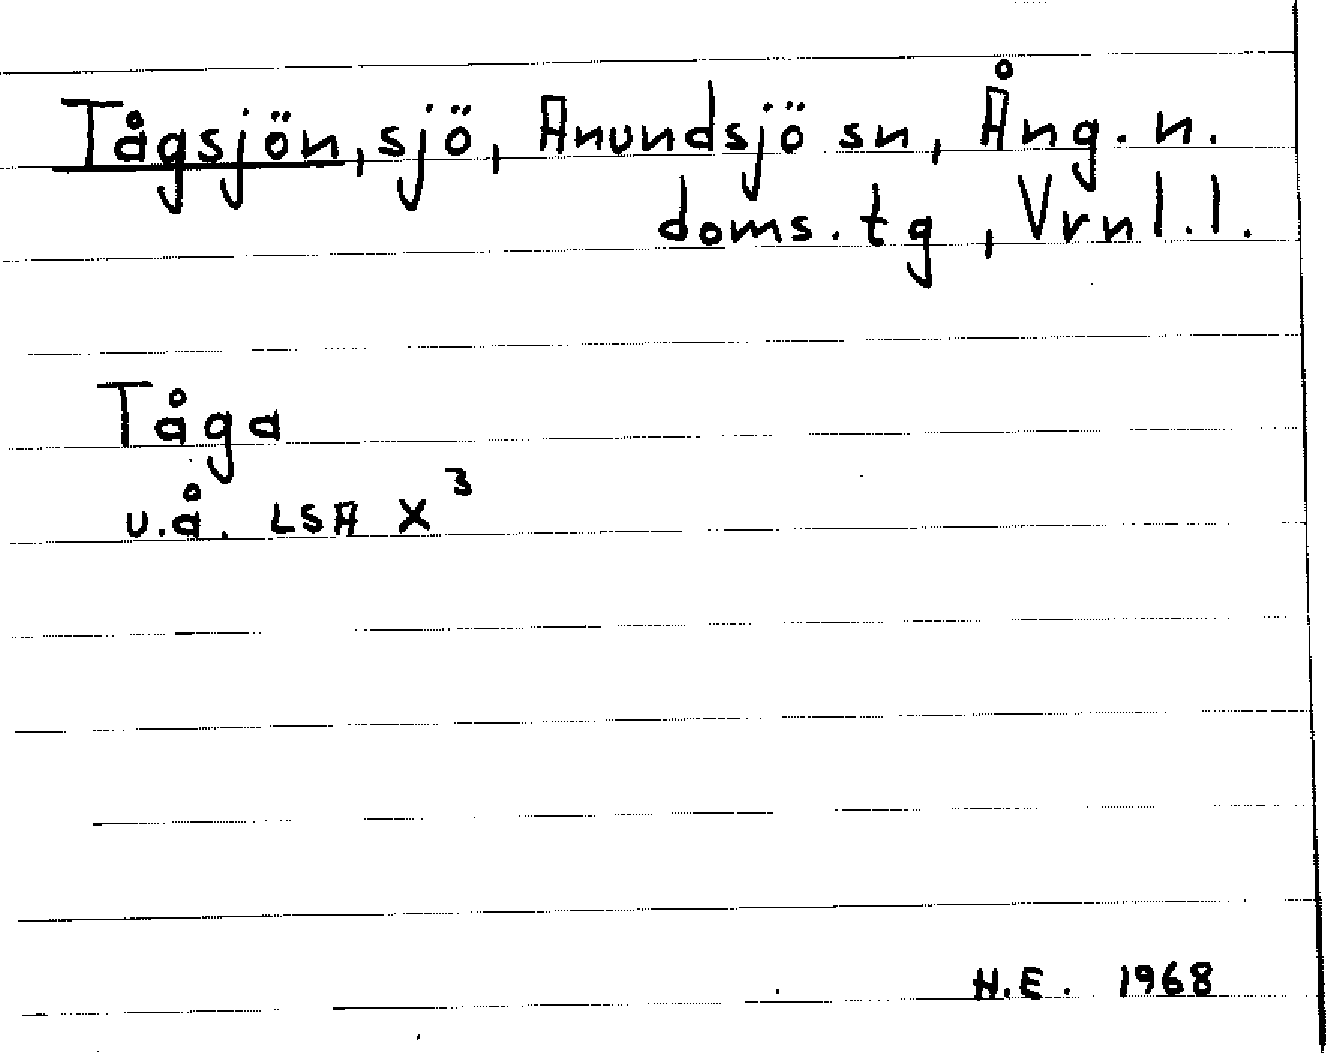 Tågsjön, sjö, Anundsjö sn, Ång. n.
doms. tg, Vrnl. l.
Tåga
u.å. LSA X³
H.E. 1968